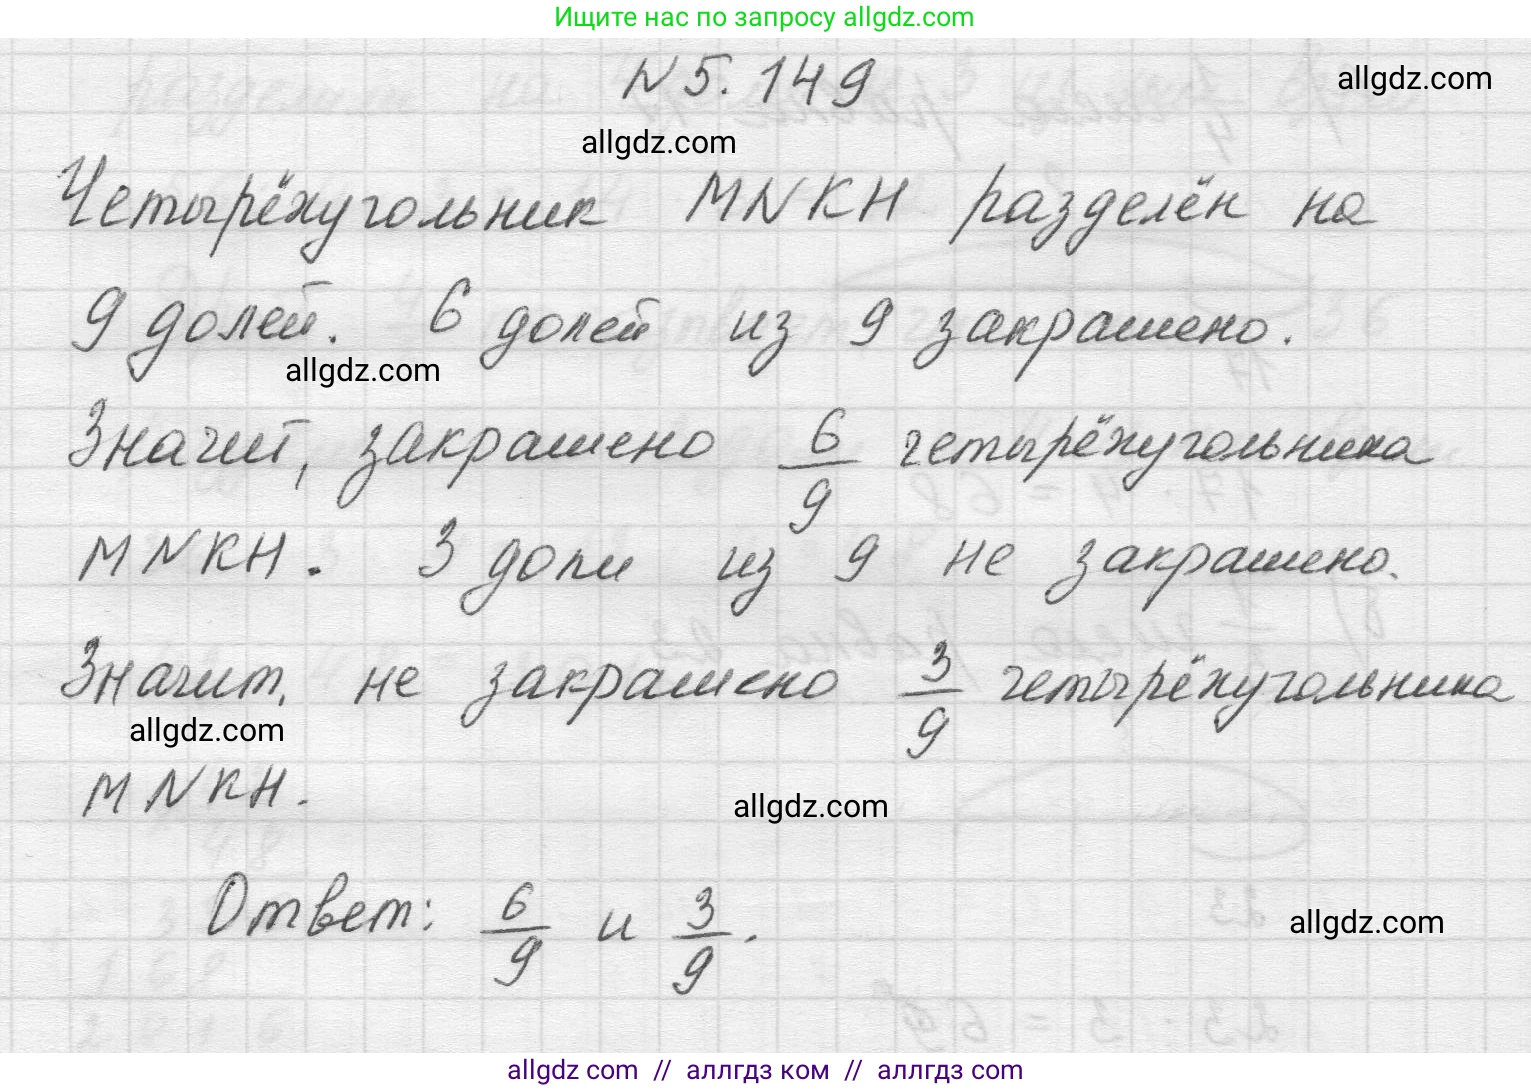 Ищите нас по запросу allgdz.com
№ 5.149
allgdz.com
allgdz.com
Четырёхугольник MNKH разделён на
9 долей. 6 долей из 9 закрашено.
allgdz.com
Значит, закрашено 6/9 четырёхугольника
MNKH. 3 доли из 9 не закрашено.
Значит, не закрашено 3/9 четырёхугольника
allgdz.com
MNKH.
allgdz.com
Ответ: 6/9 и 3/9.
allgdz.com
allgdz com // аллгдз ком // аллгдз com